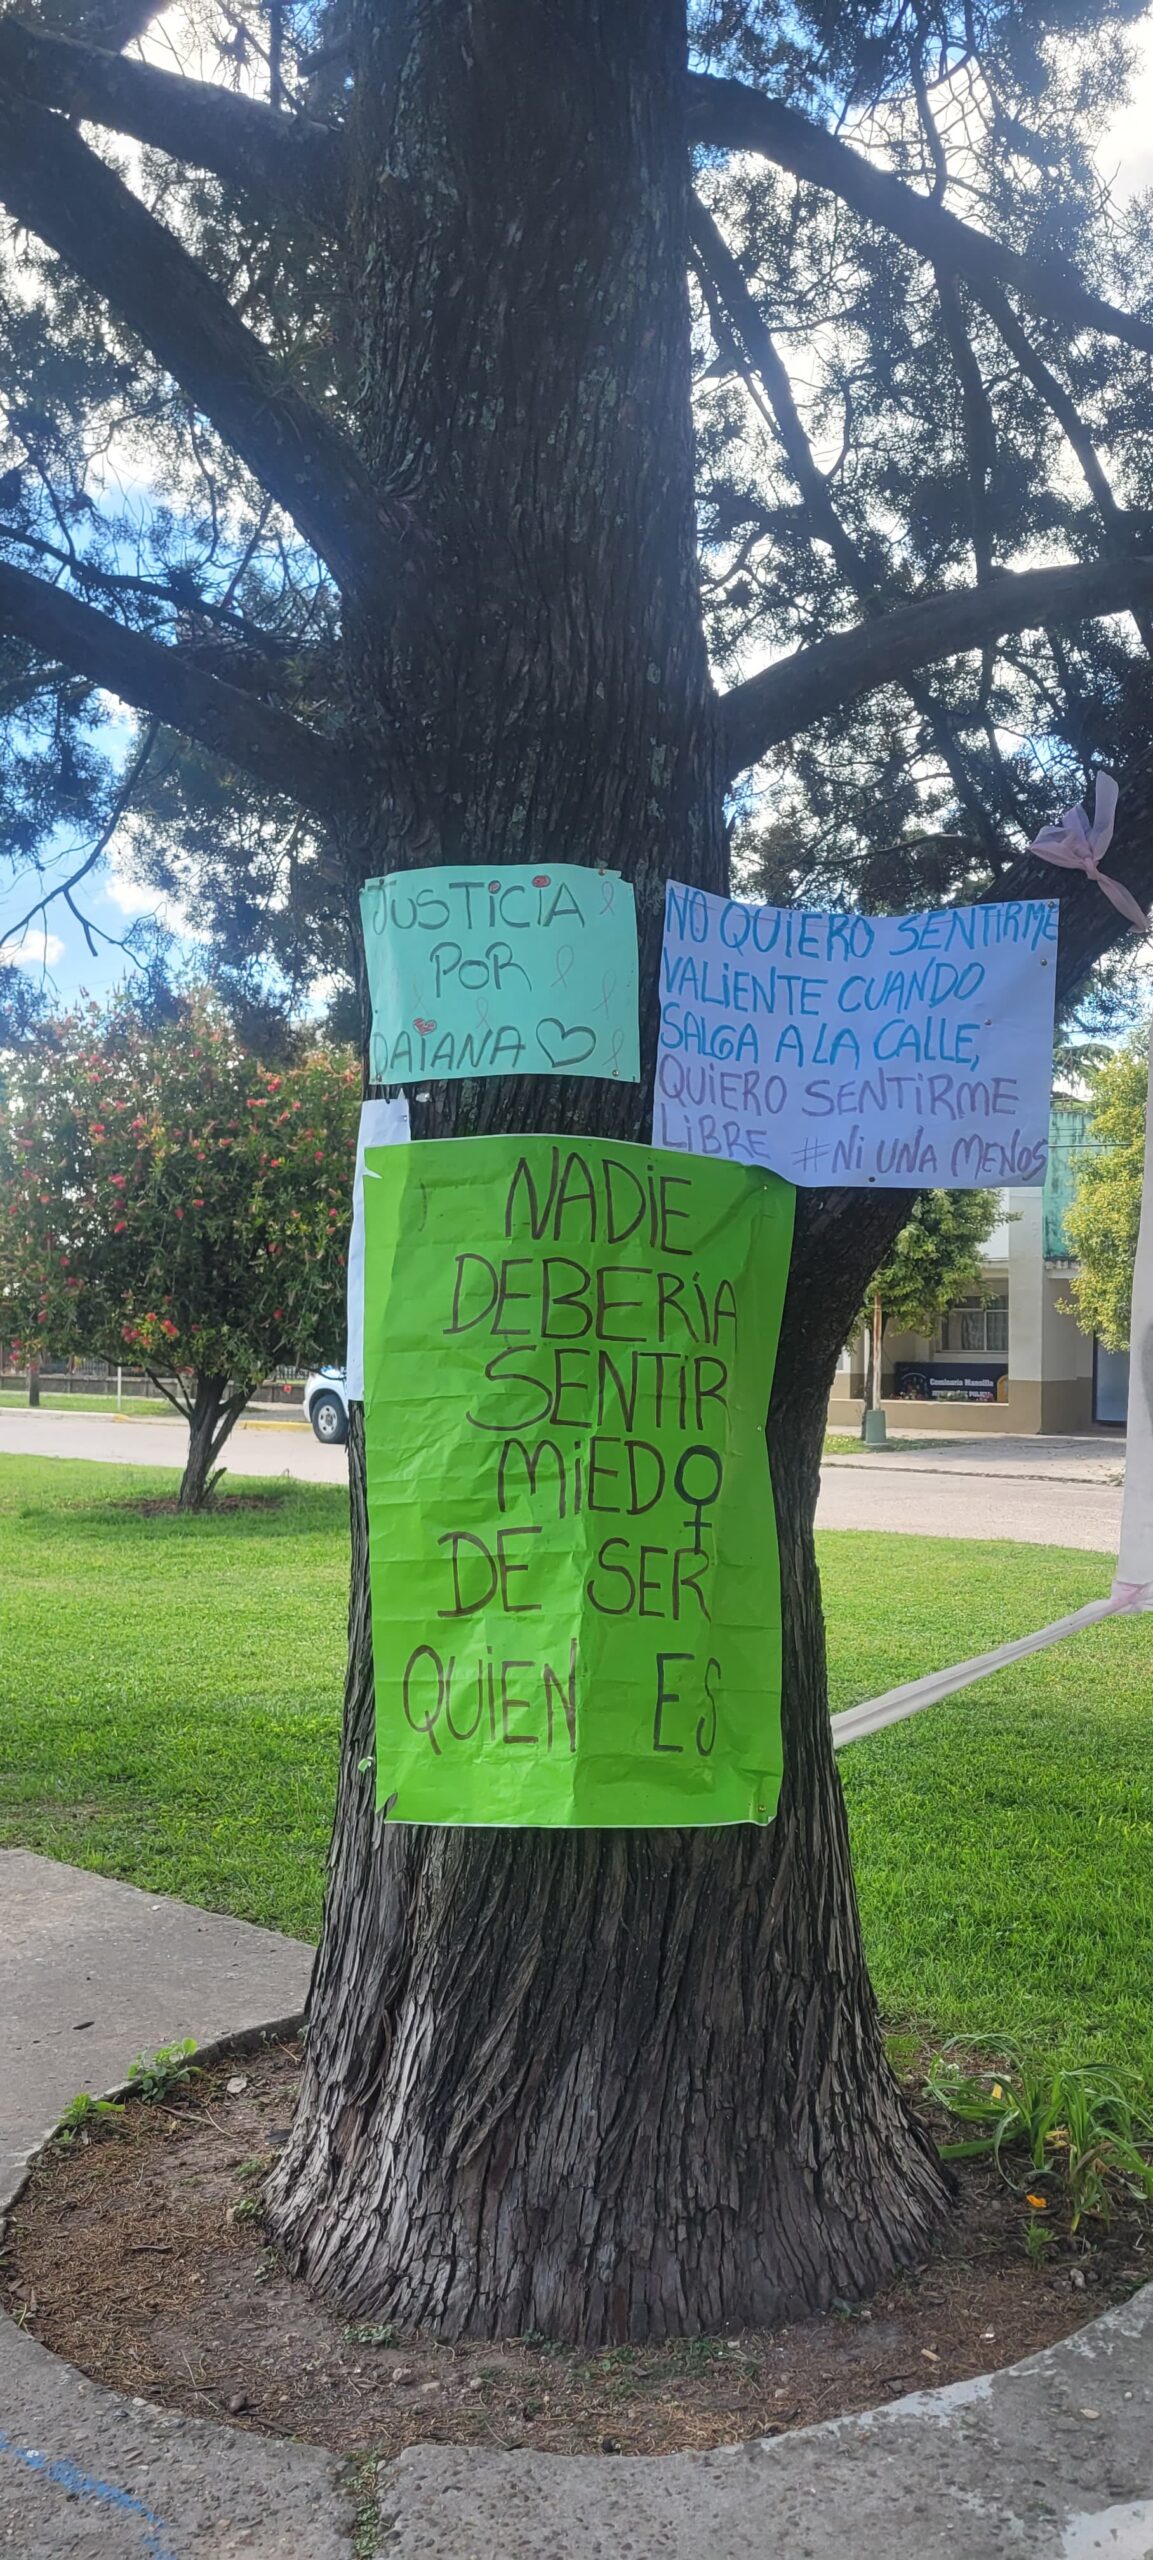 JUSTICIA
POR
DAIANA
NO QUIERO SENTIRME
VALIENTE CUANDO
SALGA A LA CALLE,
QUIERO SENTIRME
LIBRE #NI UNA MENOS
NADIE
DEBERIA
SENTIR
MIEDO
DE SER
QUIEN ES
Comisaria Mansilla